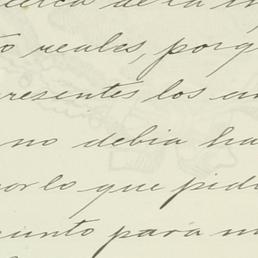 de la
reales, porq
resentes los
no debia ha
por lo que pid
unto para